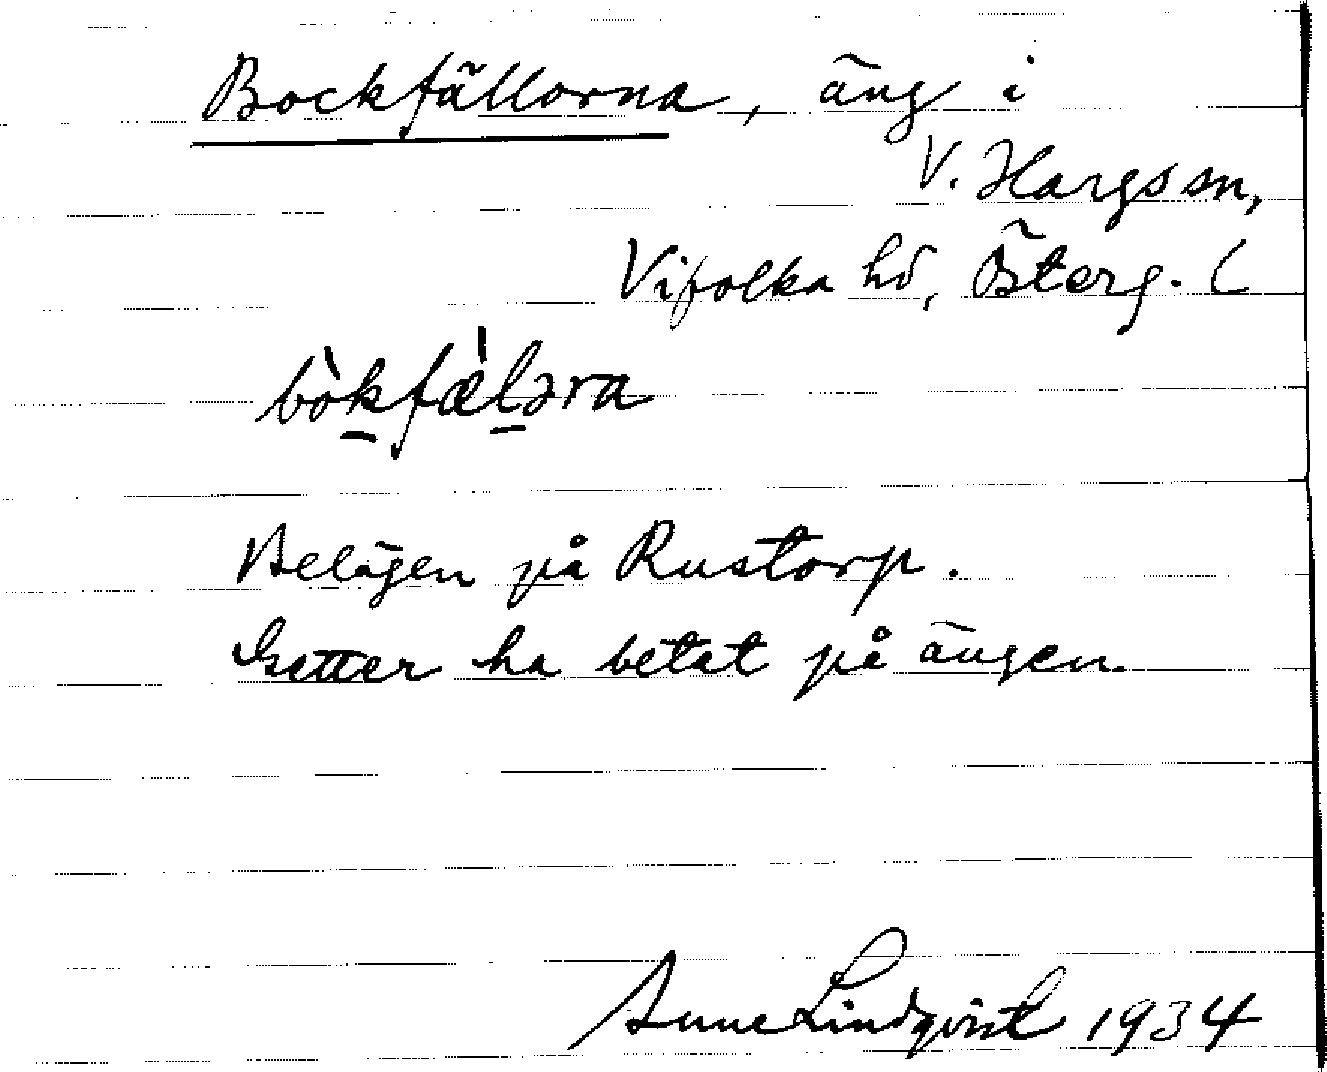 Bockfällorna, äng i
V. Hargs sn,
Vifolka hd, Österg. (
bòkfæ̀lǝra
Belägen på Rustorp.
Getter ha betat på ängen.
Sune Lindqvist 1934